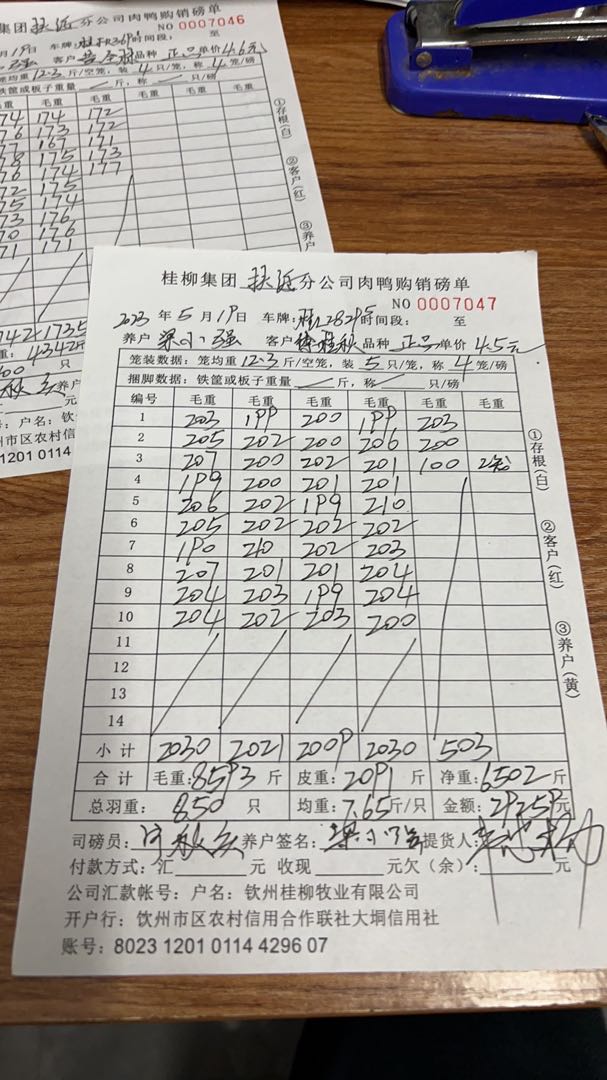 集团扶近分公司肉鸭购销磅单
NO 0007046
月19日 车牌: 时间段: 至
强 客户 品种 正品 单价4.6元
笼均重12.3斤/空笼,装4只/笼,称4笼/磅
铁筐或板子重量 斤,称 只/磅
毛重 毛重 毛重 毛重 毛重
74 174 172
76 173 172
77 167 171
78 175 173
76 174 177
72 175
75 174
73 176
70 176
71 171
①存根(白)
②客户(红)
③养户
742 1735
重: 4342斤
00 只
养户
元
号:户名:钦
州市区农村信
1201 0114
桂柳集团 扶近 分公司肉鸭购销磅单
NO 0007047
2023年5月19日 车牌: 时间段: 至
养户 梁小强 客户 品种 正品 单价4.5元
笼装数据:笼均重12.3斤/空笼,装5只/笼,称4笼/磅
捆脚数据:铁筐或板子重量 斤,称 只/磅
编号 毛重 毛重 毛重 毛重 毛重 毛重
1 203 199 200 199 203
2 205 202 200 206 200
3 207 200 202 201 100 2笼
4 199 200 201 201
5 206 202 199 210
6 205 202 202 202
7 190 210 202 203
8 207 201 201 204
9 204 203 199 204
10 204 202 203 200
11
12
13
14
小计 2030 2021 2009 2030 503
合计 毛重:8593斤 皮重:2091斤 净重:6502斤
总羽重: 850 只 均重:7.65斤/只 金额:29259元
司磅员: 养户签名:梁小强 提货人:
付款方式:汇 元 收现 元欠(余): 元
公司汇款帐号:户名:钦州桂柳牧业有限公司
开户行:钦州市区农村信用合作联社大垌信用社
账号:8023 1201 0114 4296 07
①存根(白)
②客户(红)
③养户(黄)